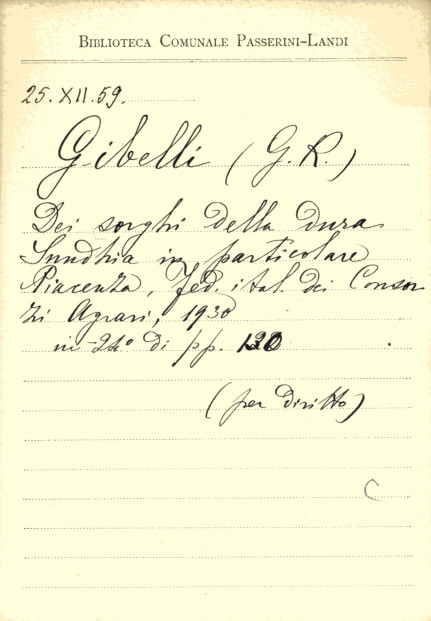 BIBLIOTECA COMUNALE PASSERINI-LANDI
25.XII.59.
Gibelli (G. R.)
Dei sorghi della dura
in particolare
Piacenza, Fed. ital. dei Consor
zi Agrari, 1930
in-24° di pp. 120
(per diritto)
C